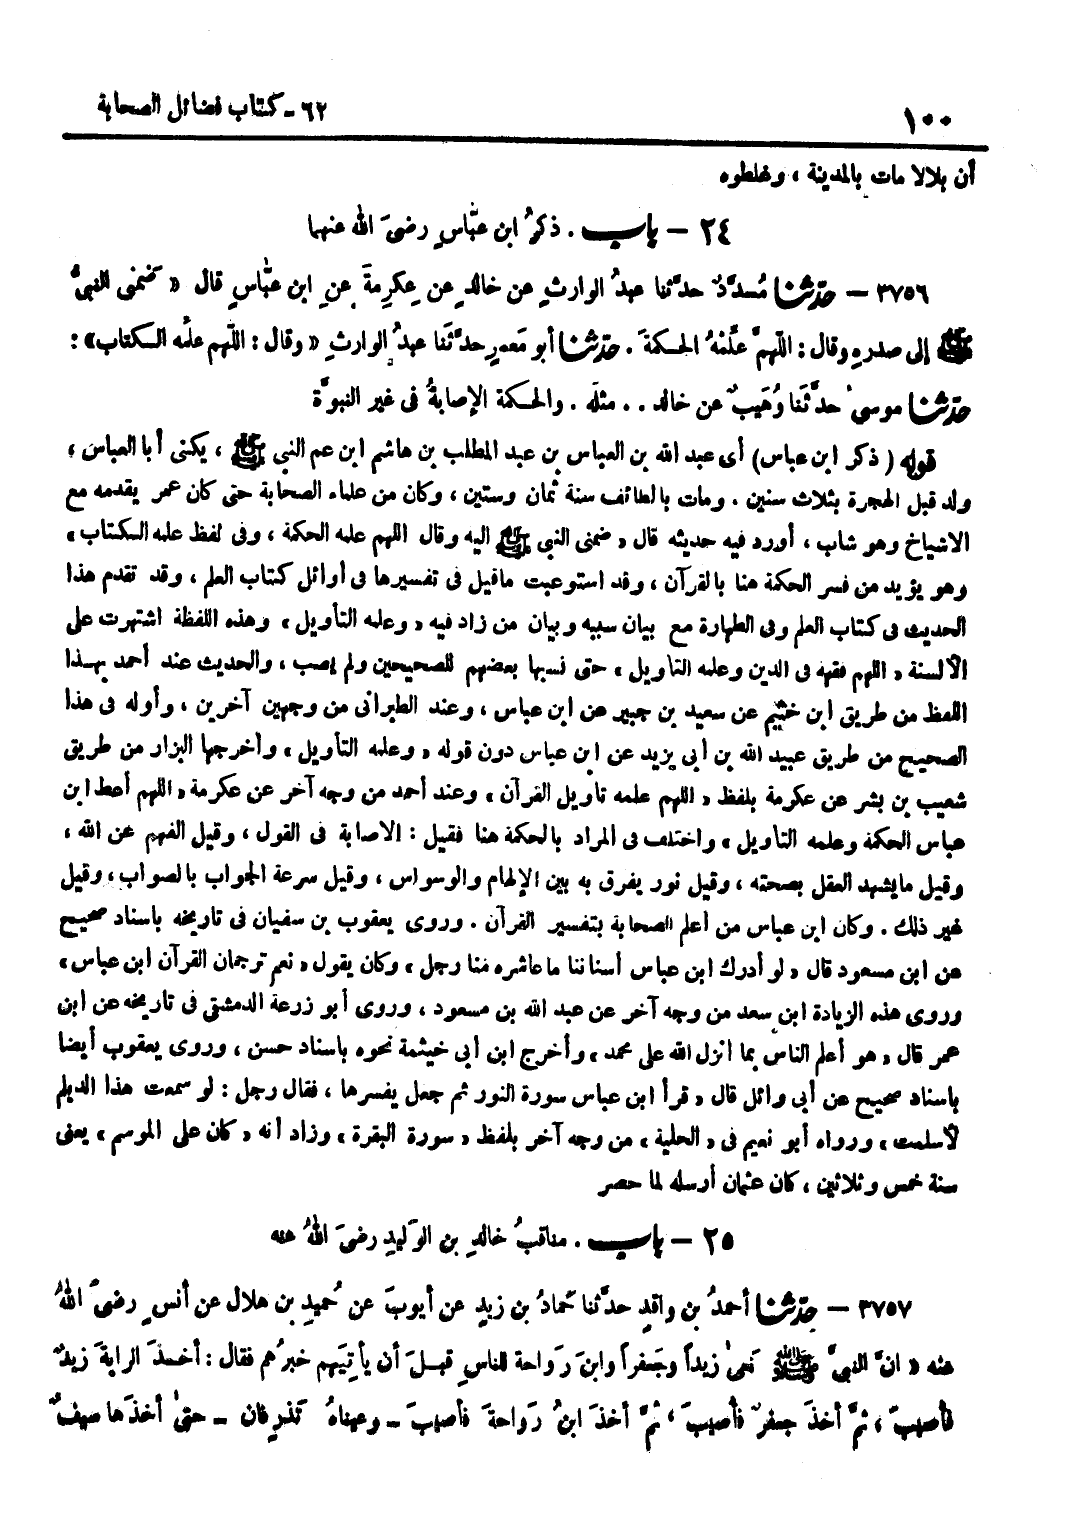 ١٠٠ ٦٢ - كتاب فضائل الصحابة
أن بلالا مات بالمدينة ، وغلطوه
٢٤ - باب . ذكرُ ابن عبَّاسٍ رضىَ اللهُ عنهما
٣٧٥٦ - حدّثنا مُسدَّدٌ حدَّثنا عبدُ الوارثِ عن خالدٍ عن عِكرِمةَ عنِ ابنِ عبَّاسٍ قال « ضَمَّنى النبىُّ
ﷺ إلى صدرِهِ وقال : اللّهمَّ علِّمْهُ الحـكمةَ . حدّثنا أبو مَعمرٍ حدَّثَنا عبدُ الوارثِ « وقال : اللّهم علِّمه الـكتاب » :
حدّثنا موسىٰ حدَّثَنا وُهَيبٌ عن خالد . . مثلَه . والحـكمة الإصابةُ فى غير النبوَّة
قوله ( ذكر ابن عباس) أى عبد الله بن العباس بن عبد المطلب بن هاشم ابن عم النبى ﷺ ، يكنى أبا العباس ،
ولد قبل الهجرة بثلاث سنين . ومات بالطائف سنة ثمان وستين ، وكان من علماء الصحابة حتى كان عمر يقدمه مع
الاشياخ وهو شاب ، أورد فيه حديثه قال « ضمنى النبى ﷺ اليه وقال اللهم علمه الحكمة ، وفى لفظ علمه الكتاب »
وهو يؤيد من فسر الحكمة هنا بالقرآن ، وقد استوعبت ماقيل فى تفسيرها فى أوائل كتاب العلم ، وقد تقدم هذا
الحديث فى كتاب العلم وفى الطهارة مع بيان سببه وبيان من زاد فيه « وعلمه التأويل » وهذه اللفظة اشتهرت على
الألسنة « اللهم فقهه فى الدين وعلمه التأويل » حتى نسبها بعضهم للصحيحين ولم يصب ، والحديث عند أحمد بهـذا
اللفظ من طريق ابن خثيم عن سعيد بن جبير عن ابن عباس ، وعند الطبرانى من وجهين آخرين ، وأوله فى هذا
الصحيح من طريق عبيد الله بن أبى يزيد عن ابن عباس دون قوله « وعلمه التأويل » وأخرجها البزار من طريق
شعيب بن بشر عن عكرمة بلفظ « اللهم علمه تأويل القرآن » وعند أحمد من وجه آخر عن عكرمة « اللهم أعط ابن
عباس الحكمة وعلمه التأويل » واختلف فى المراد بالحكمة هنا فقيل : الاصابة فى القول ، وقيل الفهم عن الله ،
وقيل مايشهد العقل بصحته ، وقيل نور يفرق به بين الإلهام والوسواس ، وقيل سرعة الجواب بالصواب ، وقيل
غير ذلك . وكان ابن عباس من أعلم الصحابة بتفسير القرآن . وروى يعقوب بن سفيان فى تاريخه باسناد صحيح
عن ابن مسعود قال « لو أدرك ابن عباس أسناننا ماعاشره منا رجل » وكان يقول « نعم ترجمان القرآن ابن عباس »
وروى هذه الزيادة ابن سعد من وجه آخر عن عبد الله بن مسعود ، وروى أبو زرعة الدمشقى فى تاريخه عن ابن
عمر قال « هو أعلم الناس بما أنزل الله على محمد » وأخرج ابن أبى خيثمة نحوه باسناد حسن ، وروى يعقوب أيضا
باسناد صحيح عن أبى وائل قال « قرأ ابن عباس سورة النور ثم جعل يفسرها ، فقال رجل : لو سمعت هذا الديلم
لأسلمت » ورواه أبو نعيم فى « الحلية » من وجه آخر بلفظ « سورة البقرة » وزاد أنه « كان على الموسم » يعنى
سنة خمس وثلاثين ، كان عثمان أرسله لما حصر
٢٥ - باب . مناقبُ خالدِ بن الوَليدِ رضىَ اللهُ عنه
٣٧٥٧ - حدّثنا أحمدُ بن واقدٍ حدَّثنا حمّادُ بن زيدٍ عن أيوبَ عن حُميدِ بن هلال عن أنسٍ رضىَ اللهُ
عنه « انَّ النبىَّ ﷺ نَعىٰ زيداً وجَعفراً وابنَ رَواحة للناسِ قبـلَ أن يأتِيَهم خبرُهم فقال : أخـذَ الرايةَ زيدٌ
فأصيبَ ، ثمَّ أخذَ جعفرٌ فأصيبَ ، ثمَّ أخذَ ابنُ رَواحةَ فأصيبَ - وعيناهُ تَذرِفان - حتىٰ أخذَها سيفٌ